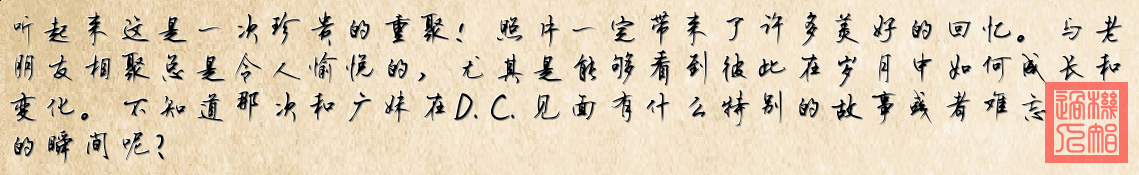 听起来这是一次珍贵的重聚！照片一定带来了许多美好的回忆。与老
朋友相聚总是令人愉悦的，尤其是能够看到彼此在岁月中如何成长和
变化。不知道那次和广妹在D.C.见面有什么特别的故事或者难忘
的瞬间呢？